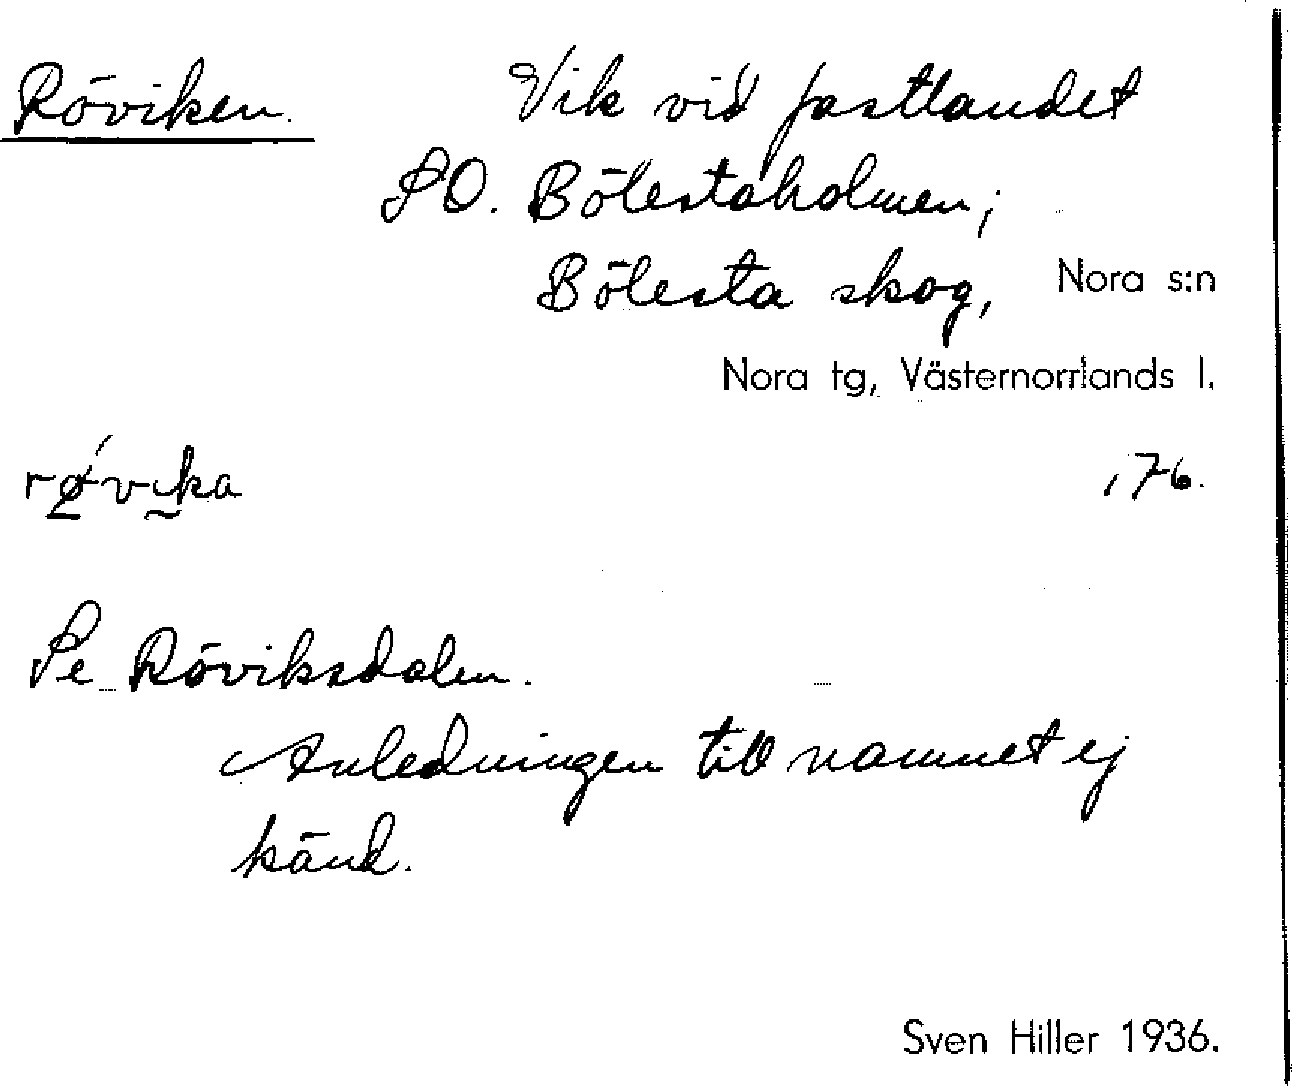 Röviken. Vik vid fastlandet
SO. Bölestaholmen;
Bölesta skog, Nora s:n
Nora tg, Västernorrlands l.
rǿ̱vika 176.
Se Röviksdalen.
Anledningen till namnet ej
känd.
Sven Hiller 1936.